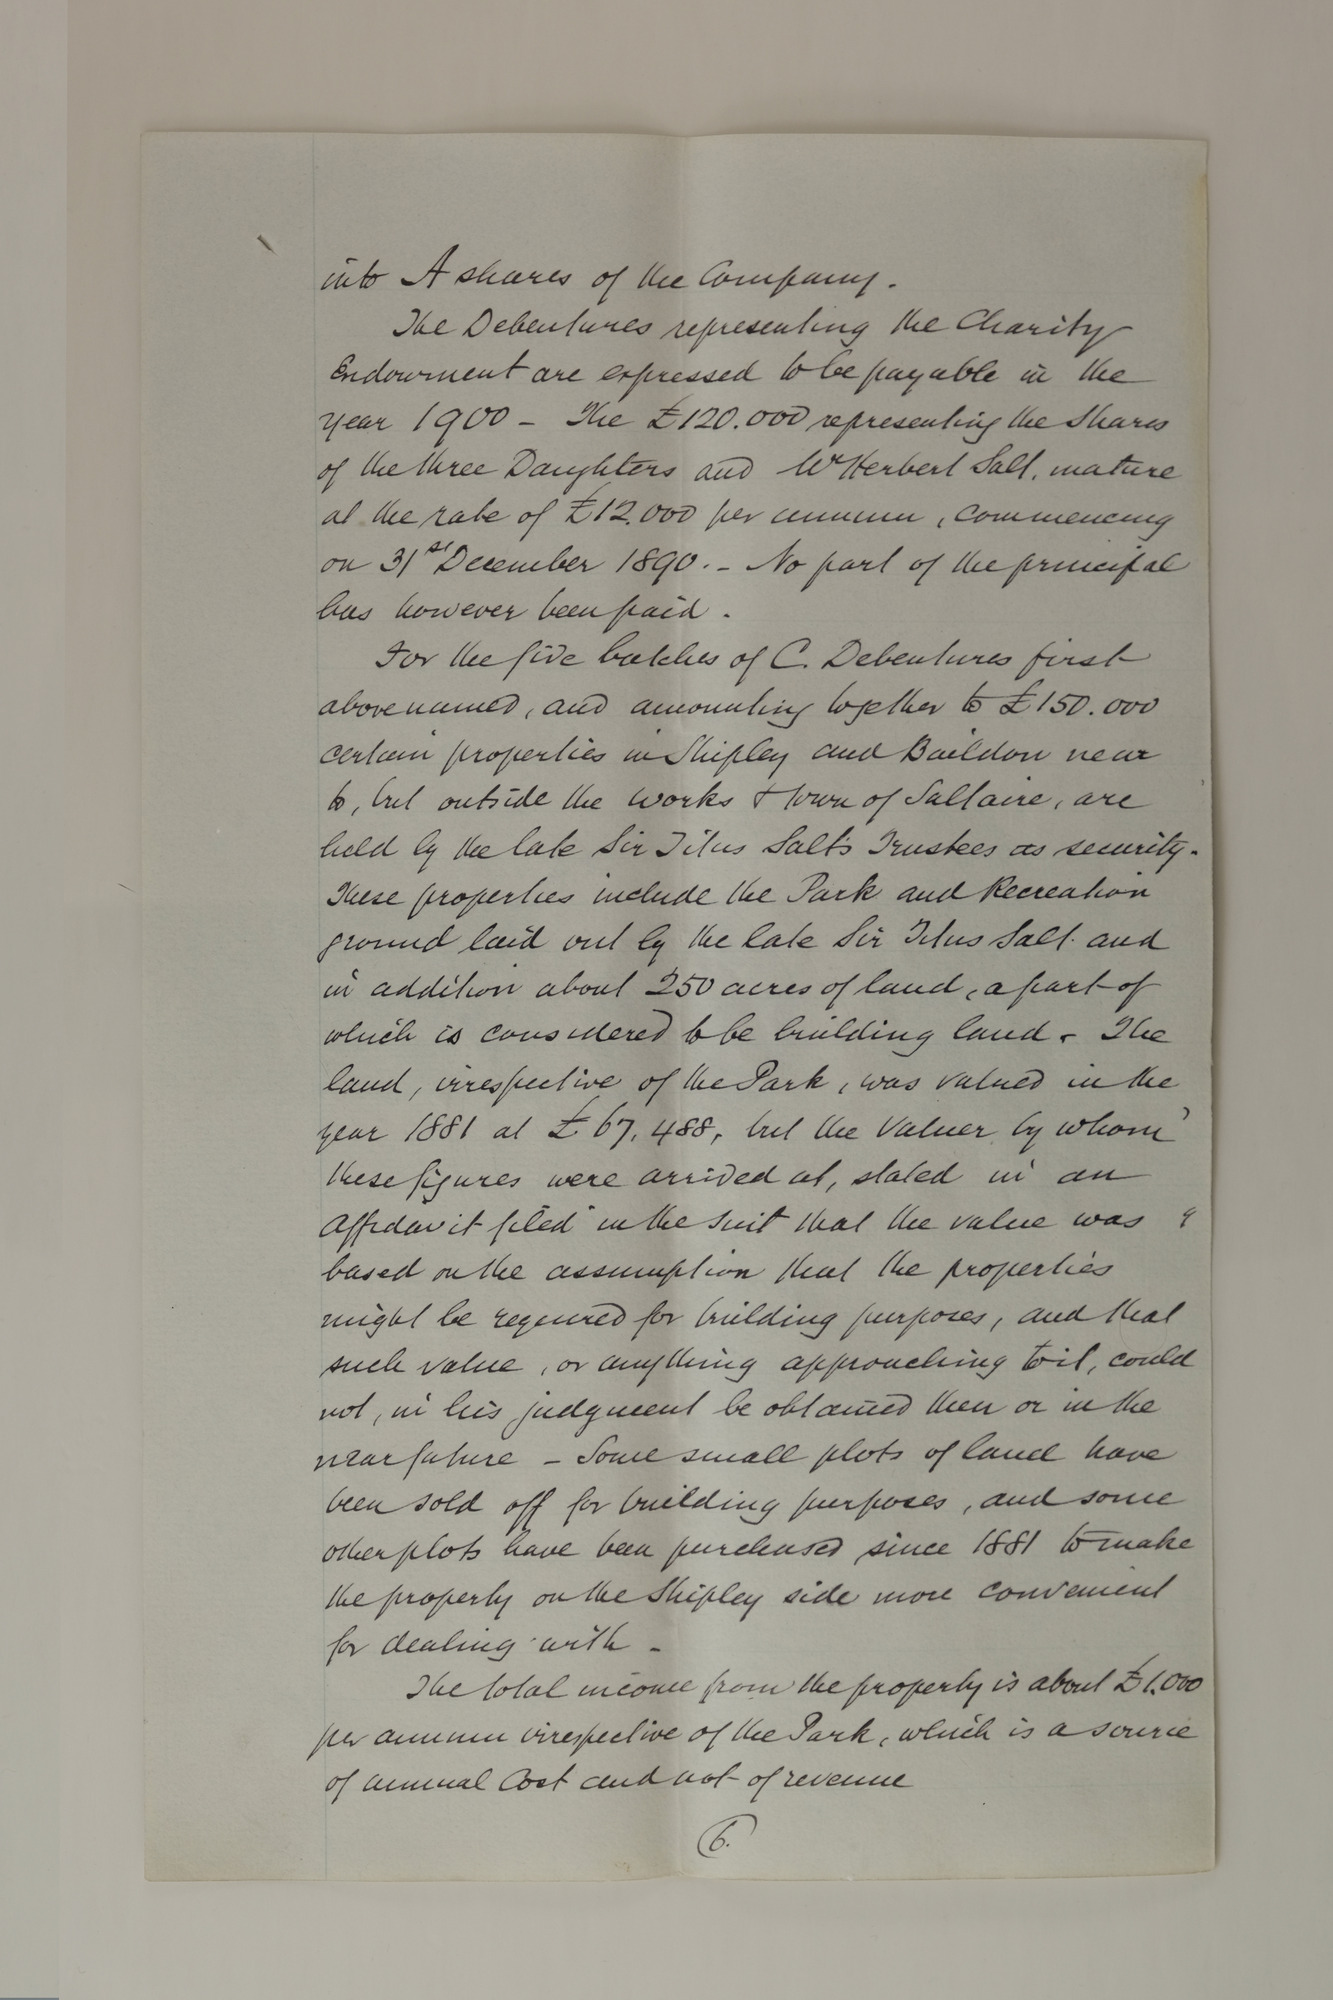 into A shares of the Company.
The Debentures representing the Charity
Endowment are expressed to be payable in the
year 1900 - The £120.000 representing the Shares
of the three Daughters and Wm Herbert Salt, mature
at the rate of £12.000 per annum, commencing
on 31st December 1890. - No part of the principal
has however been paid.
For the five batches of C. Debentures first
abovenamed, and amounting together to £150.000
certain properties in Shipley and Baildon near
to, but outside the works & town of Saltaire, are
held by the late Sir Titus Salt's Trustees as security.
These properties include the Park and Recreation
ground laid out by the late Sir Titus Salt. and
in addition about 250 acres of land, a part of
which is considered to be building land - The
land, irrespective of the Park, was valued in the
year 1881 at £67,488, but the Valuer by whom
these figures were arrived at, stated in an
Affidavit filed in the suit that the value was
based on the assumption that the properties
might be required for building purposes, and that
such value, or anything approaching to it, could
not, in his judgment be obtained then or in the
near future - Some small plots of land have
been sold off for building purposes, and some
other plots have been purchased since 1881 to make
the property on the Shipley side more convenient
for dealing with -
The total income from the property is about £1.000
per annum irrespective of the Park, which is a source
of annual Cost and not of revenue
6.